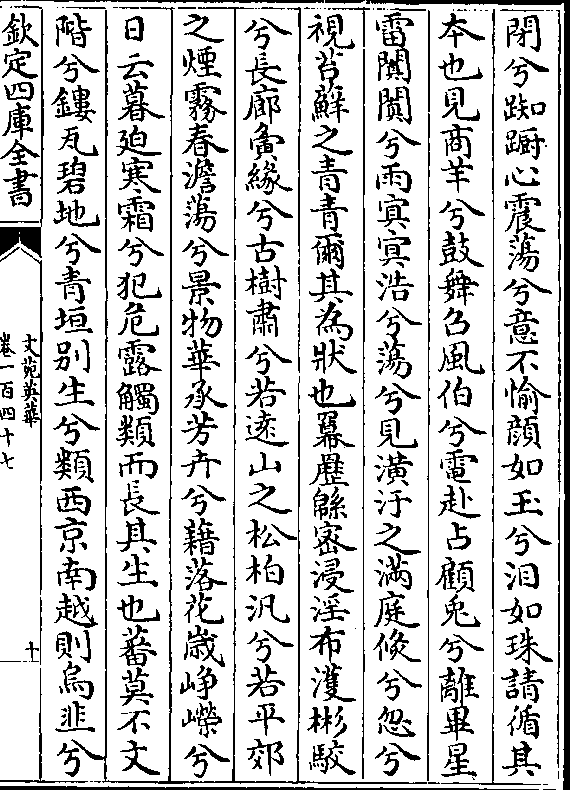 閉兮踟躕心震蕩兮意不愉顔如玉兮淚如珠請循其
夲也見商羊兮鼓舞召風伯兮電赴占顧兎兮離畢星
雷闐闐兮雨㝠㝠浩兮蕩兮見潢汙之滿庭倐兮忽兮
視苔蘚之青青爾其為狀也羃歴緜宻浸淫布濩彬駮
兮長廊夤縁兮古樹肅兮若逺山之松柏汎兮若平郊
之煙霧春澹蕩兮景物華承芳卉兮藉落花嵗崢嶸兮
日云暮廹寒霜兮犯危露觸類而長其生也蕃莫不文
階兮鏤瓦碧地兮青垣别生兮類西京南越則烏韭兮
欽定四庫全書
文苑英華
卷一百四十七
十